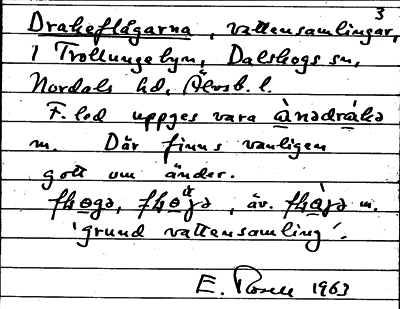 3
Drakeflågarna, vattensamlingar,
i Trollungebyn, Dalskogs sn,
Nordals hd, Älvsb. l.
F. led uppges vara ànədràkə
m. Där finns vanligen
gott om änder.
, äv. m.
'grund vattensamling'.
E. 1963